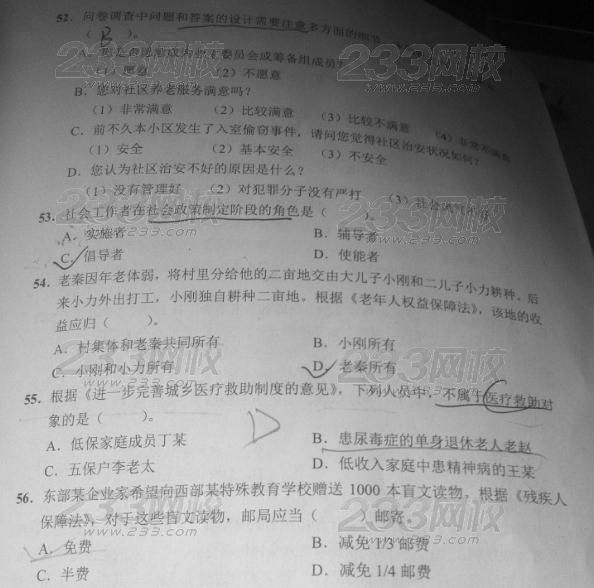 52. 问卷调查中问题和答案的设计需要注意多方面的细节
( B )。
A. 您是否愿意成为业主委员会或筹备组成员?
(1) 愿意 (2) 不愿意
B. 您对社区养老服务满意吗?
(1) 非常满意 (2) 比较满意 (3) 比较不满意 (4) 非常不满意
C. 前不久本小区发生了入室偷窃事件，请问您觉得社区治安状况如何?
(1) 安全 (2) 基本安全 (3) 不安全
D. 您认为社区治安不好的原因是什么?
(1) 没有管理好 (2) 对犯罪分子没有严打 (3) 社会风气不好
53. 社会工作者在社会政策制定阶段的角色是 ( )。
A. 实施者 B. 辅导者
C. 倡导者 D. 使能者
54. 老秦因年老体弱，将村里分给他的二亩地交由大儿子小刚和二儿子小力耕种。后
来小力外出打工，小刚独自耕种二亩地。根据《老年人权益保障法》，该地的收
益应归 ( )。
A. 村集体和老秦共同所有 B. 小刚所有
C. 小刚和小力所有 D. 老秦所有
55. 根据《进一步完善城乡医疗救助制度的意见》，下列人员中，不属于医疗救助对
象的是 ( )。 D
A. 低保家庭成员丁某 B. 患尿毒症的单身退休老人老赵
C. 五保户李老太 D. 低收入家庭中患精神病的王某
56. 东部某企业家希望向西部某特殊教育学校赠送 1000 本盲文读物。根据《残疾人
保障法》，对于这些盲文读物，邮局应当 ( ) 邮寄。
A. 免费 B. 减免 1/3 邮费
C. 半费 D. 减免 1/4 邮费
233网校
www.233.com